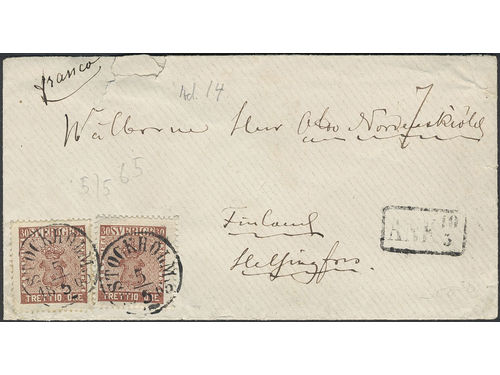 franco
Ad. 14
7
Wälborne Herr Otto Nordenskiöld
5/5 65
Finland
Helsingfors.
ANK 10/5
30 SVERIGE 30
STOCKHOLM
5
TRETTIO ÖRE
30 SVERIGE 30
STOCKHOLM
5
TRETTIO ÖRE